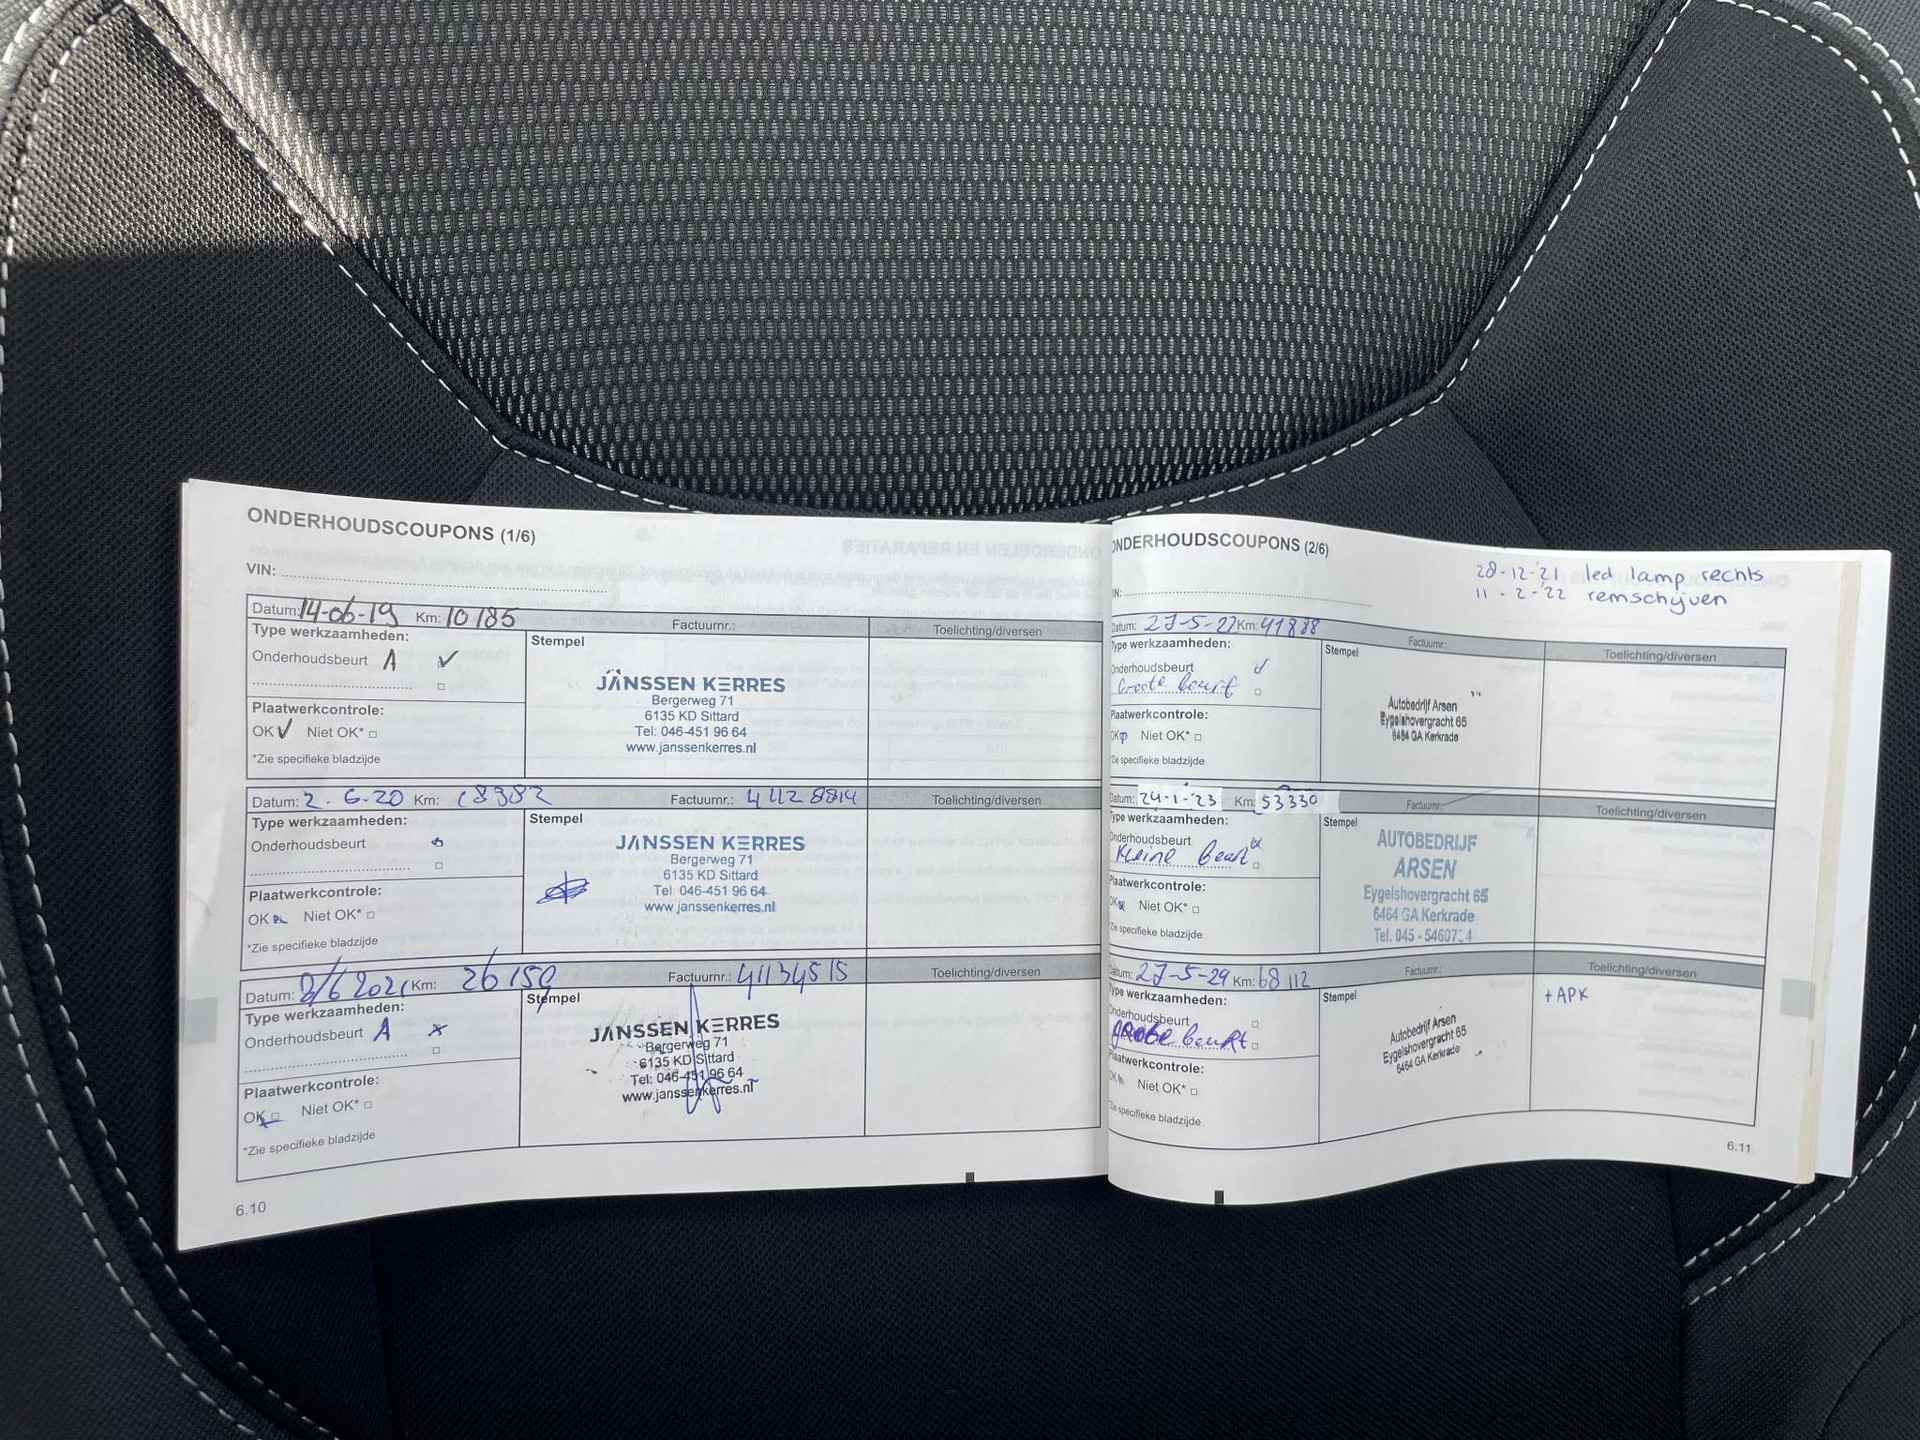 ONDERHOUDSCOUPONS (1/6)
VIN:
Datum: 14-06-19 Km: 10185 Factuurnr.: Toelichting/diversen
Type werkzaamheden:
Onderhoudsbeurt A
Plaatwerkcontrole:
OK Niet OK*
*Zie specifieke bladzijde
Stempel
JANSSEN KERRES
Bergerweg 71
6135 KD Sittard
Tel: 046-451 96 64
www.janssenkerres.nl
Datum: 2-6-20 Km: 18382 Factuurnr.: 41128814 Toelichting/diversen
Type werkzaamheden:
Onderhoudsbeurt
Plaatwerkcontrole:
OK Niet OK*
*Zie specifieke bladzijde
Stempel
JANSSEN KERRES
Bergerweg 71
6135 KD Sittard
Tel: 046-451 96 64
www.janssenkerres.nl
Datum: 2/6 2021 Km: 26150 Factuurnr.: 41134515 Toelichting/diversen
Type werkzaamheden:
Onderhoudsbeurt A
Plaatwerkcontrole:
OK Niet OK*
*Zie specifieke bladzijde
Stempel
JANSSEN KERRES
Bergerweg 71
6135 KD Sittard
Tel: 046-451 96 64
www.janssenkerres.nl
6.10
ONDERHOUDSCOUPONS (2/6)
28-12-'21 led lamp rechts
11-2-'22 remschijven
IN:
Datum: 27-5-22 Km: 41888 Factuurnr.: Toelichting/diversen
Type werkzaamheden:
Onderhoudsbeurt
Grote beurt
Plaatwerkcontrole:
OK Niet OK*
*Zie specifieke bladzijde
Stempel
Autobedrijf Arsen
Eygelshovergracht 65
6464 GA Kerkrade
Datum: 24-1-'23 Km: 53330 Factuurnr.: Toelichting/diversen
Type werkzaamheden:
Onderhoudsbeurt
Kleine beurt
Plaatwerkcontrole:
OK Niet OK*
*Zie specifieke bladzijde
Stempel
AUTOBEDRIJF
ARSEN
Eygelshovergracht 65
6464 GA Kerkrade
Tel. 045 -
Datum: 27-5-24 Km: 68112 Factuurnr.: Toelichting/diversen
Type werkzaamheden:
Onderhoudsbeurt
grote beurt
Plaatwerkcontrole:
OK Niet OK*
*Zie specifieke bladzijde
Stempel
Autobedrijf Arsen
Eygelshovergracht 65
6464 GA Kerkrade
+APK
6.11